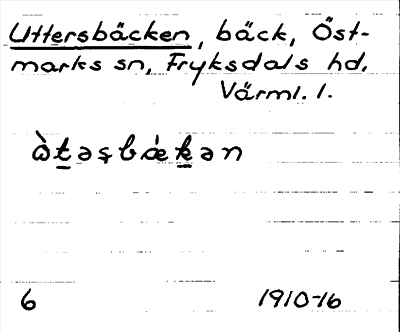 Uttersbäcken, bäck, Öst-
marks sn, Fryksdals hd,
Värml. l.
ὼt̲əʂbǽk̲ən
6 1910-16